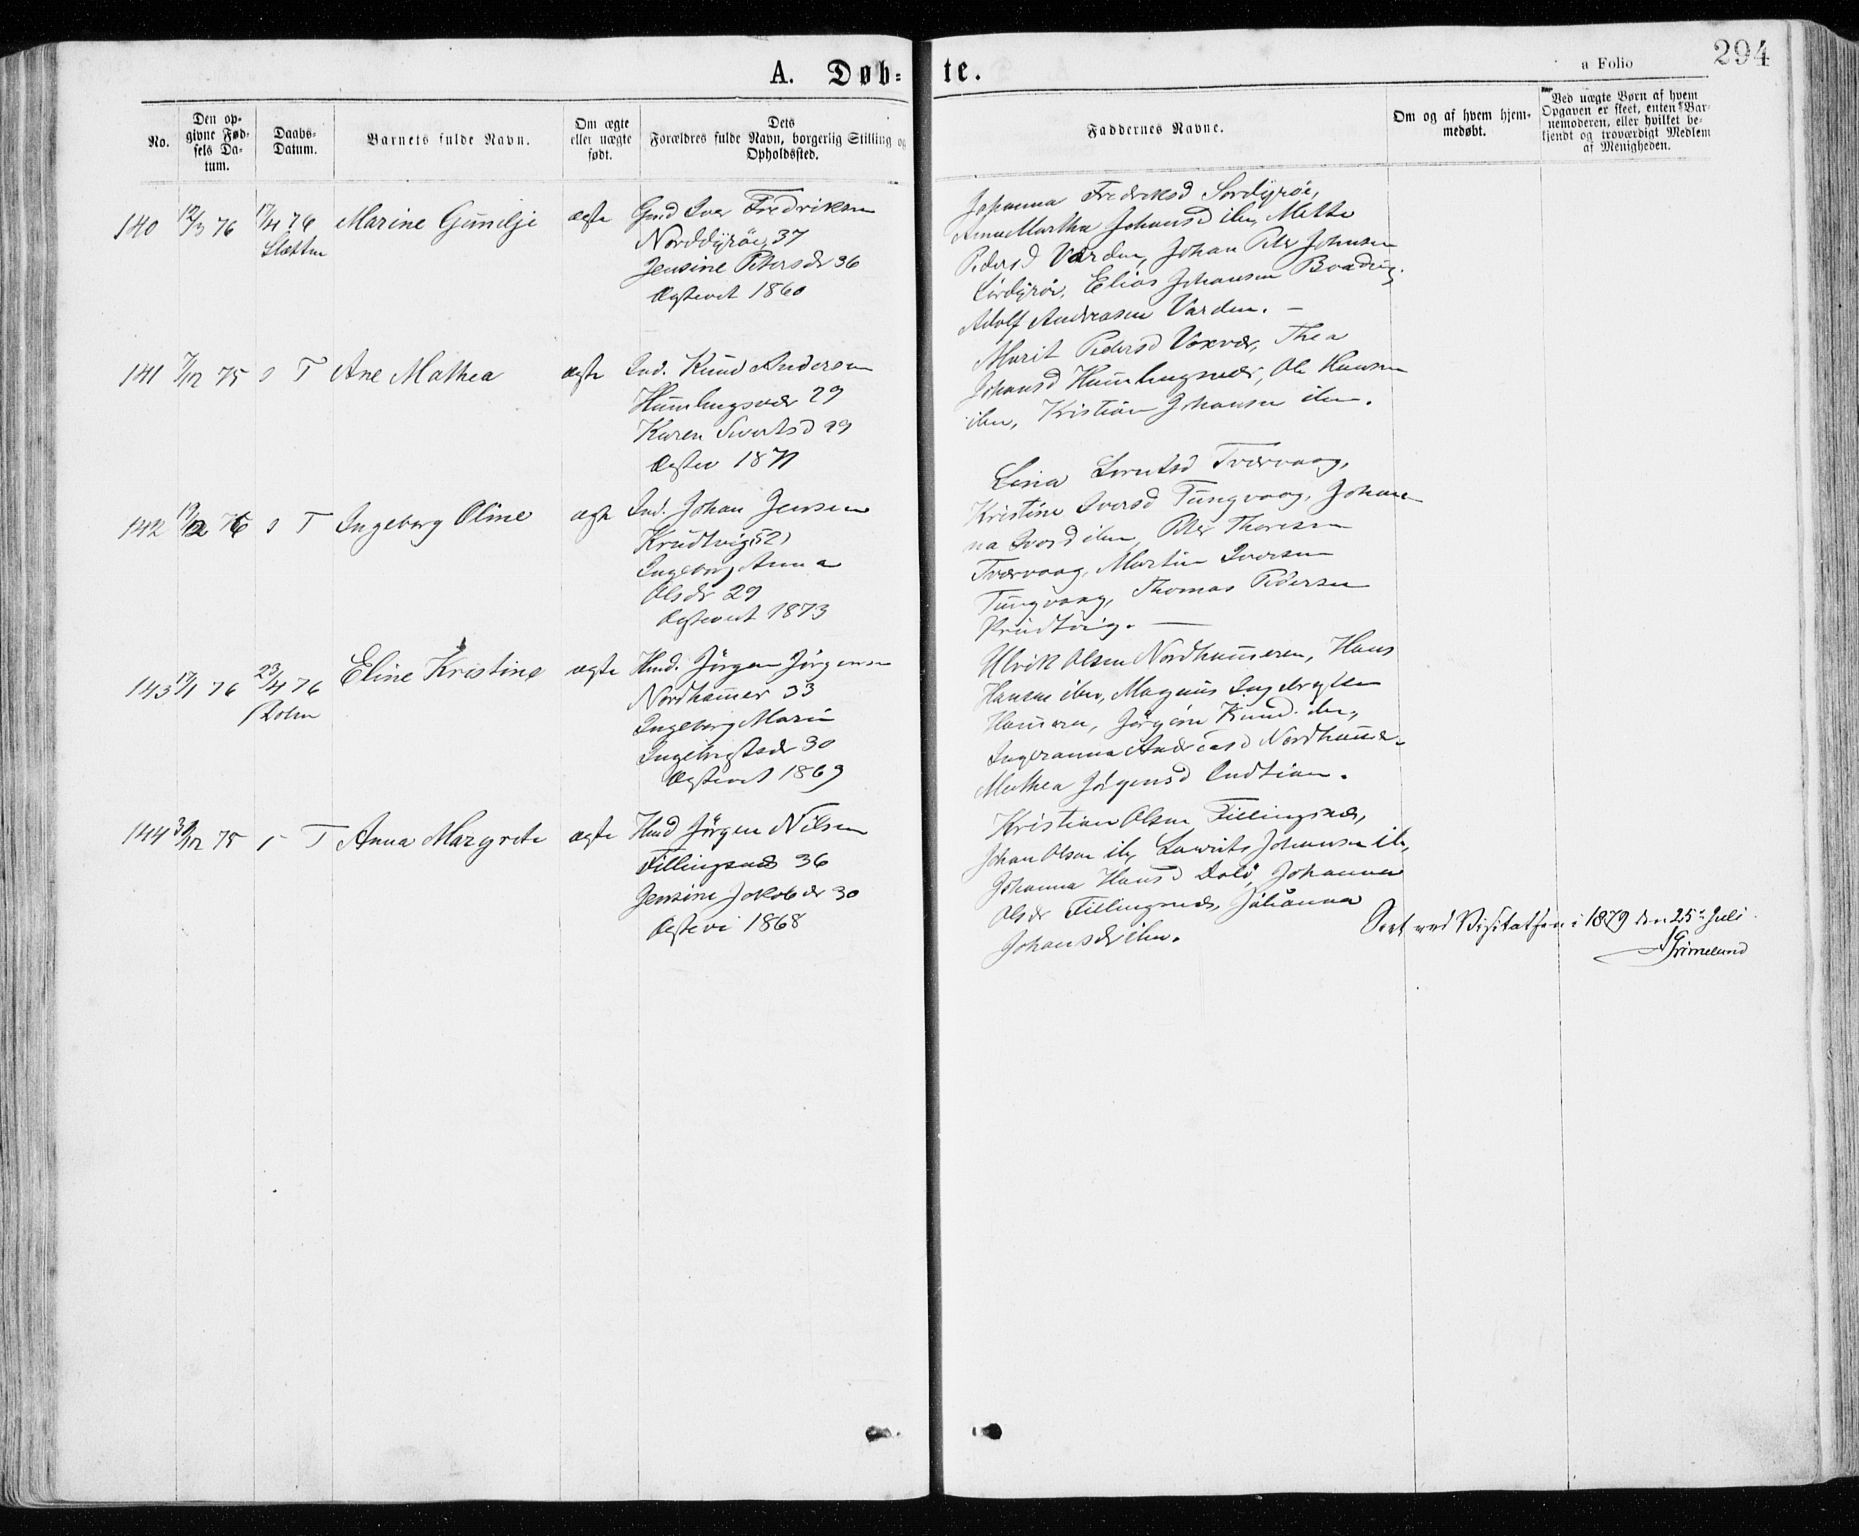 A. Døb=
te.
a Folio
294
No.
Den op-
givne Fød-
sels Da-
tum.
Daabs-
Datum.
Barnets fulde Navn.
Om ægte
eller uægte
født.
Dets
Forældres fulde Navn, borgerlig Stilling og
Opholdssted.
Faddernes Navne.
Om og af hvem hjem-
medøbt.
Ved uægte Børn af hvem
Opgaven er skeet, enten Bar-
nemoderen, eller hvilket be-
kjendt og troværdigt Medlem
af Menigheden.
140 12/3 76 17/4 76 Marine Gunelje ægte Gmd Iver Fredriksen
Norddyrøe 37
Jensine Petersdr 36
Ægteviet 1860
Johanna Fredriksd Sørdyrøe,
Anna Martha Johansd ibm, Mette
Pedersd Varden, Johan Peter Johnsen
Sørdyrøe, Elias Johansen
Adolf Andreasen Varden. –
141 7/12 75 s T Ane Mathea ægte Ind. Knud Andersen
Humlingsvær 29
Karen Sivertsd 29
Ægtev 1871
Marit Pedersd Voxvær, Thea
Johansd Humlingsvær, Ole Hansen
ibm, Kristian Johansen ibm.
142 76 s T Ingeborg Oline ægte Ind. Johan Jensen
Krudtvig 52
Ingeborg Anna
Olsdr 29
Ægteviet 1873
Lina Lorntsd Tværvaag,
Kristine Iversd Tungvaag, Johan-
na Iversd ibm, Peter Thoresen
Tværvaag, Martin Iversen
Tungvaag, Thomas Pedersen
Krudtvig. —
143 17/1 76 23/4 76 Eline Kristine ægte Hmd. Jørgen Jørgensen
Nordhamer 33
Ingeborg Marie
Ingebrigtsdr 30
Ægteviet 1869
Ulrik Olsen Nordhammeren, Hans
Hansen ibm, Magnus Ingebrigtsen
Hameren, Jørgen
Andreasd Nordhamer
Mathea Jørgensd
144 30/12 75 s T Anna Margrete ægte Hmd Jørgen Nilsen
Fillingsnæs 36
Jensine Jakobdr 30
Ægtevi 1868
Kristian Olsen Fillingsnæs,
Johan Olsen ib, Lawrits Johansen ib,
Johanna Hansd Dolø, Johanna
Olsdr Fillingsnæs, Julianna
Johansdr ibm.
Seet ved Visitatsen i 1879 den 25de Juli
Grimelund